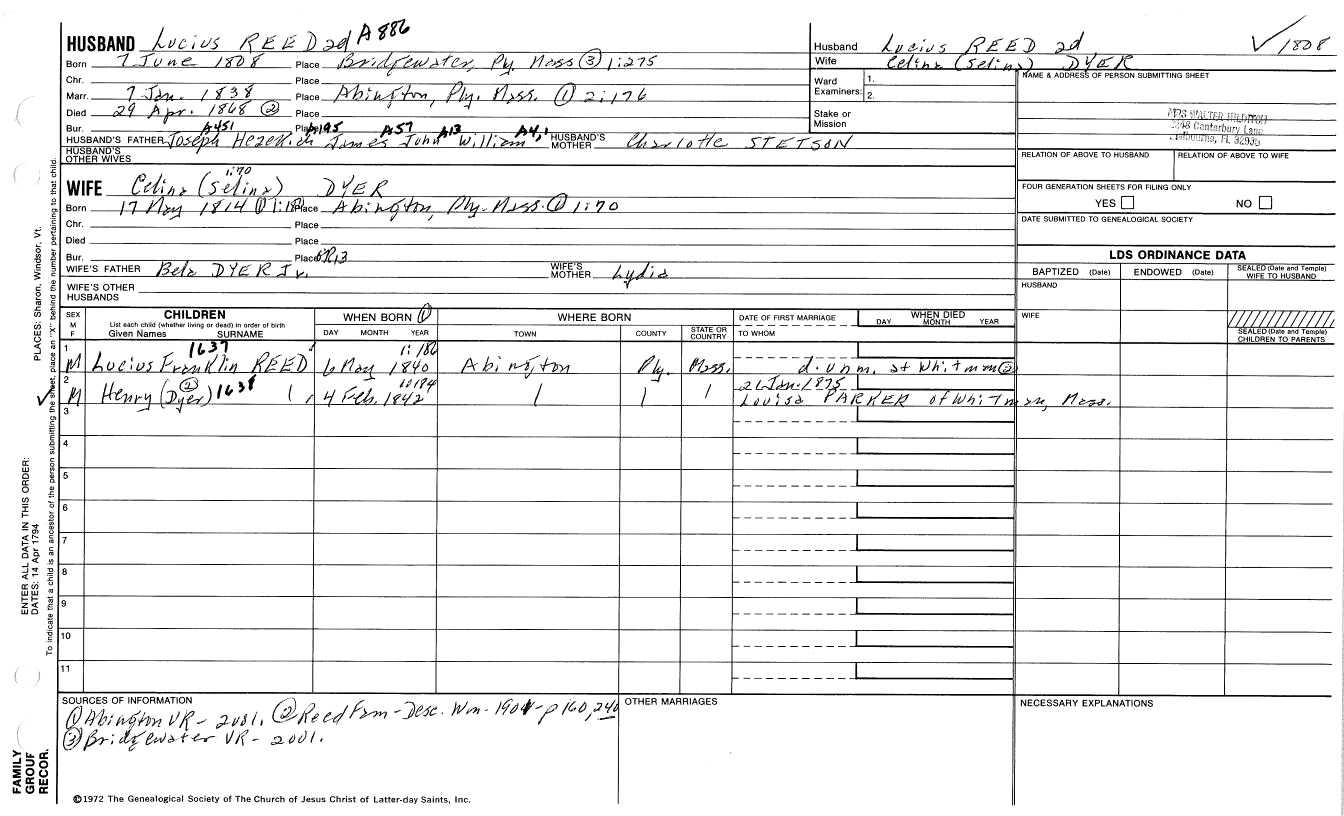 HUSBAND Lucius REED 2d A886
Born 7 June 1808 Place Bridgewater, Ply. Mass ③ 1:275
Chr. Place
Marr. 7 Jan. 1838 Place Abington, Ply. Mass. ① 2:176
Died 29 Apr. 1868 ② Place
Bur. Place
A451 A195 A57 A13 A4,1
HUSBAND'S FATHER Joseph Hezekiah James John William HUSBAND'S MOTHER Charlotte STETSON
HUSBAND'S OTHER WIVES
1:70
WIFE Celina (Selina) DYER
Born 17 May 1814 ① Place Abington, Ply. Mass. ① 1:70
Chr. Place
Died Place
Bur. Place
WIFE'S FATHER Bela DYER Jr. WIFE'S MOTHER Lydia
WIFE'S OTHER HUSBANDS
Husband Lucius REED 2d ✓ 1808
Wife Celina (Selina) DYER
Ward Examiners: 1.
2.
Stake or Mission
NAME & ADDRESS OF PERSON SUBMITTING SHEET
MRS WALTER
Canterbury Lane
Melbourne, FL 32935
RELATION OF ABOVE TO HUSBAND RELATION OF ABOVE TO WIFE
FOUR GENERATION SHEETS FOR FILING ONLY
YES NO
DATE SUBMITTED TO GENEALOGICAL SOCIETY
LDS ORDINANCE DATA
BAPTIZED (Date) ENDOWED (Date) SEALED (Date and Temple) WIFE TO HUSBAND
HUSBAND
WIFE
SEALED (Date and Temple) CHILDREN TO PARENTS
SEX M F
CHILDREN
List each child (whether living or dead) in order of birth
Given Names SURNAME
WHEN BORN ①
DAY MONTH YEAR
WHERE BORN
TOWN COUNTY STATE OR COUNTRY
DATE OF FIRST MARRIAGE
TO WHOM
WHEN DIED
DAY MONTH YEAR
1 1637 1:186
M Lucius Franklin REED 6 May 1840 Abington Ply. Mass. d. unm. at Whitman ②
2 ② 21 Jan. 1875
✓ M Henry (Dyer) 1638 4 Feb. 1842 Louisa PARKER of Whitman, Mass.
3
4
5
6
7
8
9
10
11
SOURCES OF INFORMATION
① Abington VR - 2001. ② Reed Fam - Desc. Wm - 1901 - p 160, 240
③ Bridgewater VR - 2001.
OTHER MARRIAGES
NECESSARY EXPLANATIONS
©1972 The Genealogical Society of The Church of Jesus Christ of Latter-day Saints, Inc.
FAMILY GROUP RECOR.
ENTER ALL DATA IN THIS ORDER:
DATES: 14 Apr 1794
PLACES: Sharon, Windsor, Vt.
To indicate that a child is an ancestor of the person submitting the sheet, place an "X" behind the number pertaining to that child.